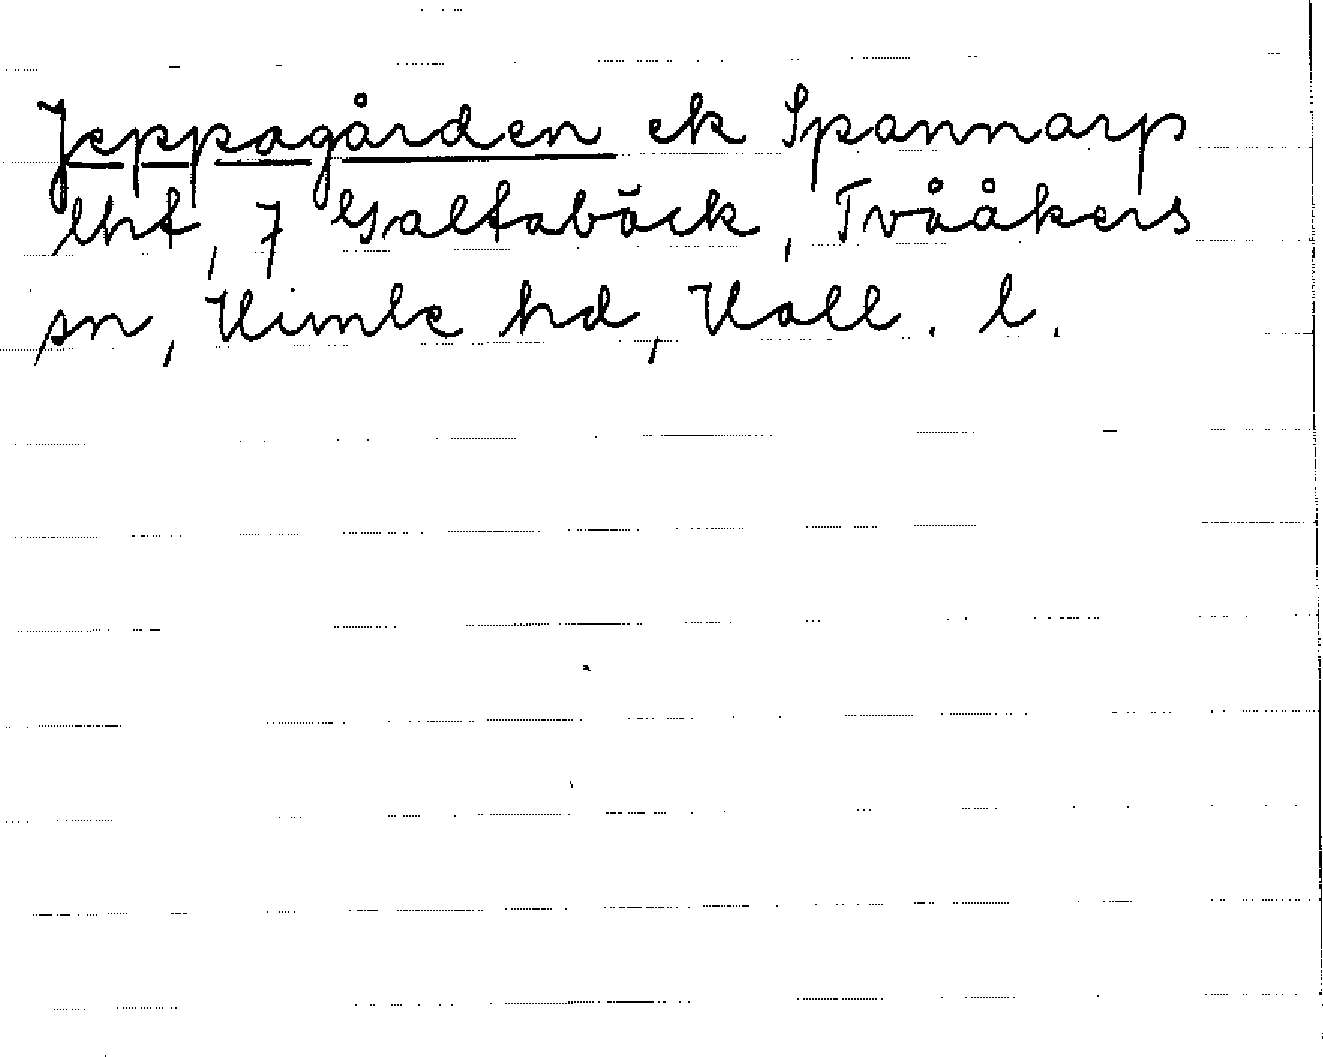 Jeppagården ek Spannarp
lht, 7 Galtabäck, Tvååkers
sn, Himle hd, Hall. l.